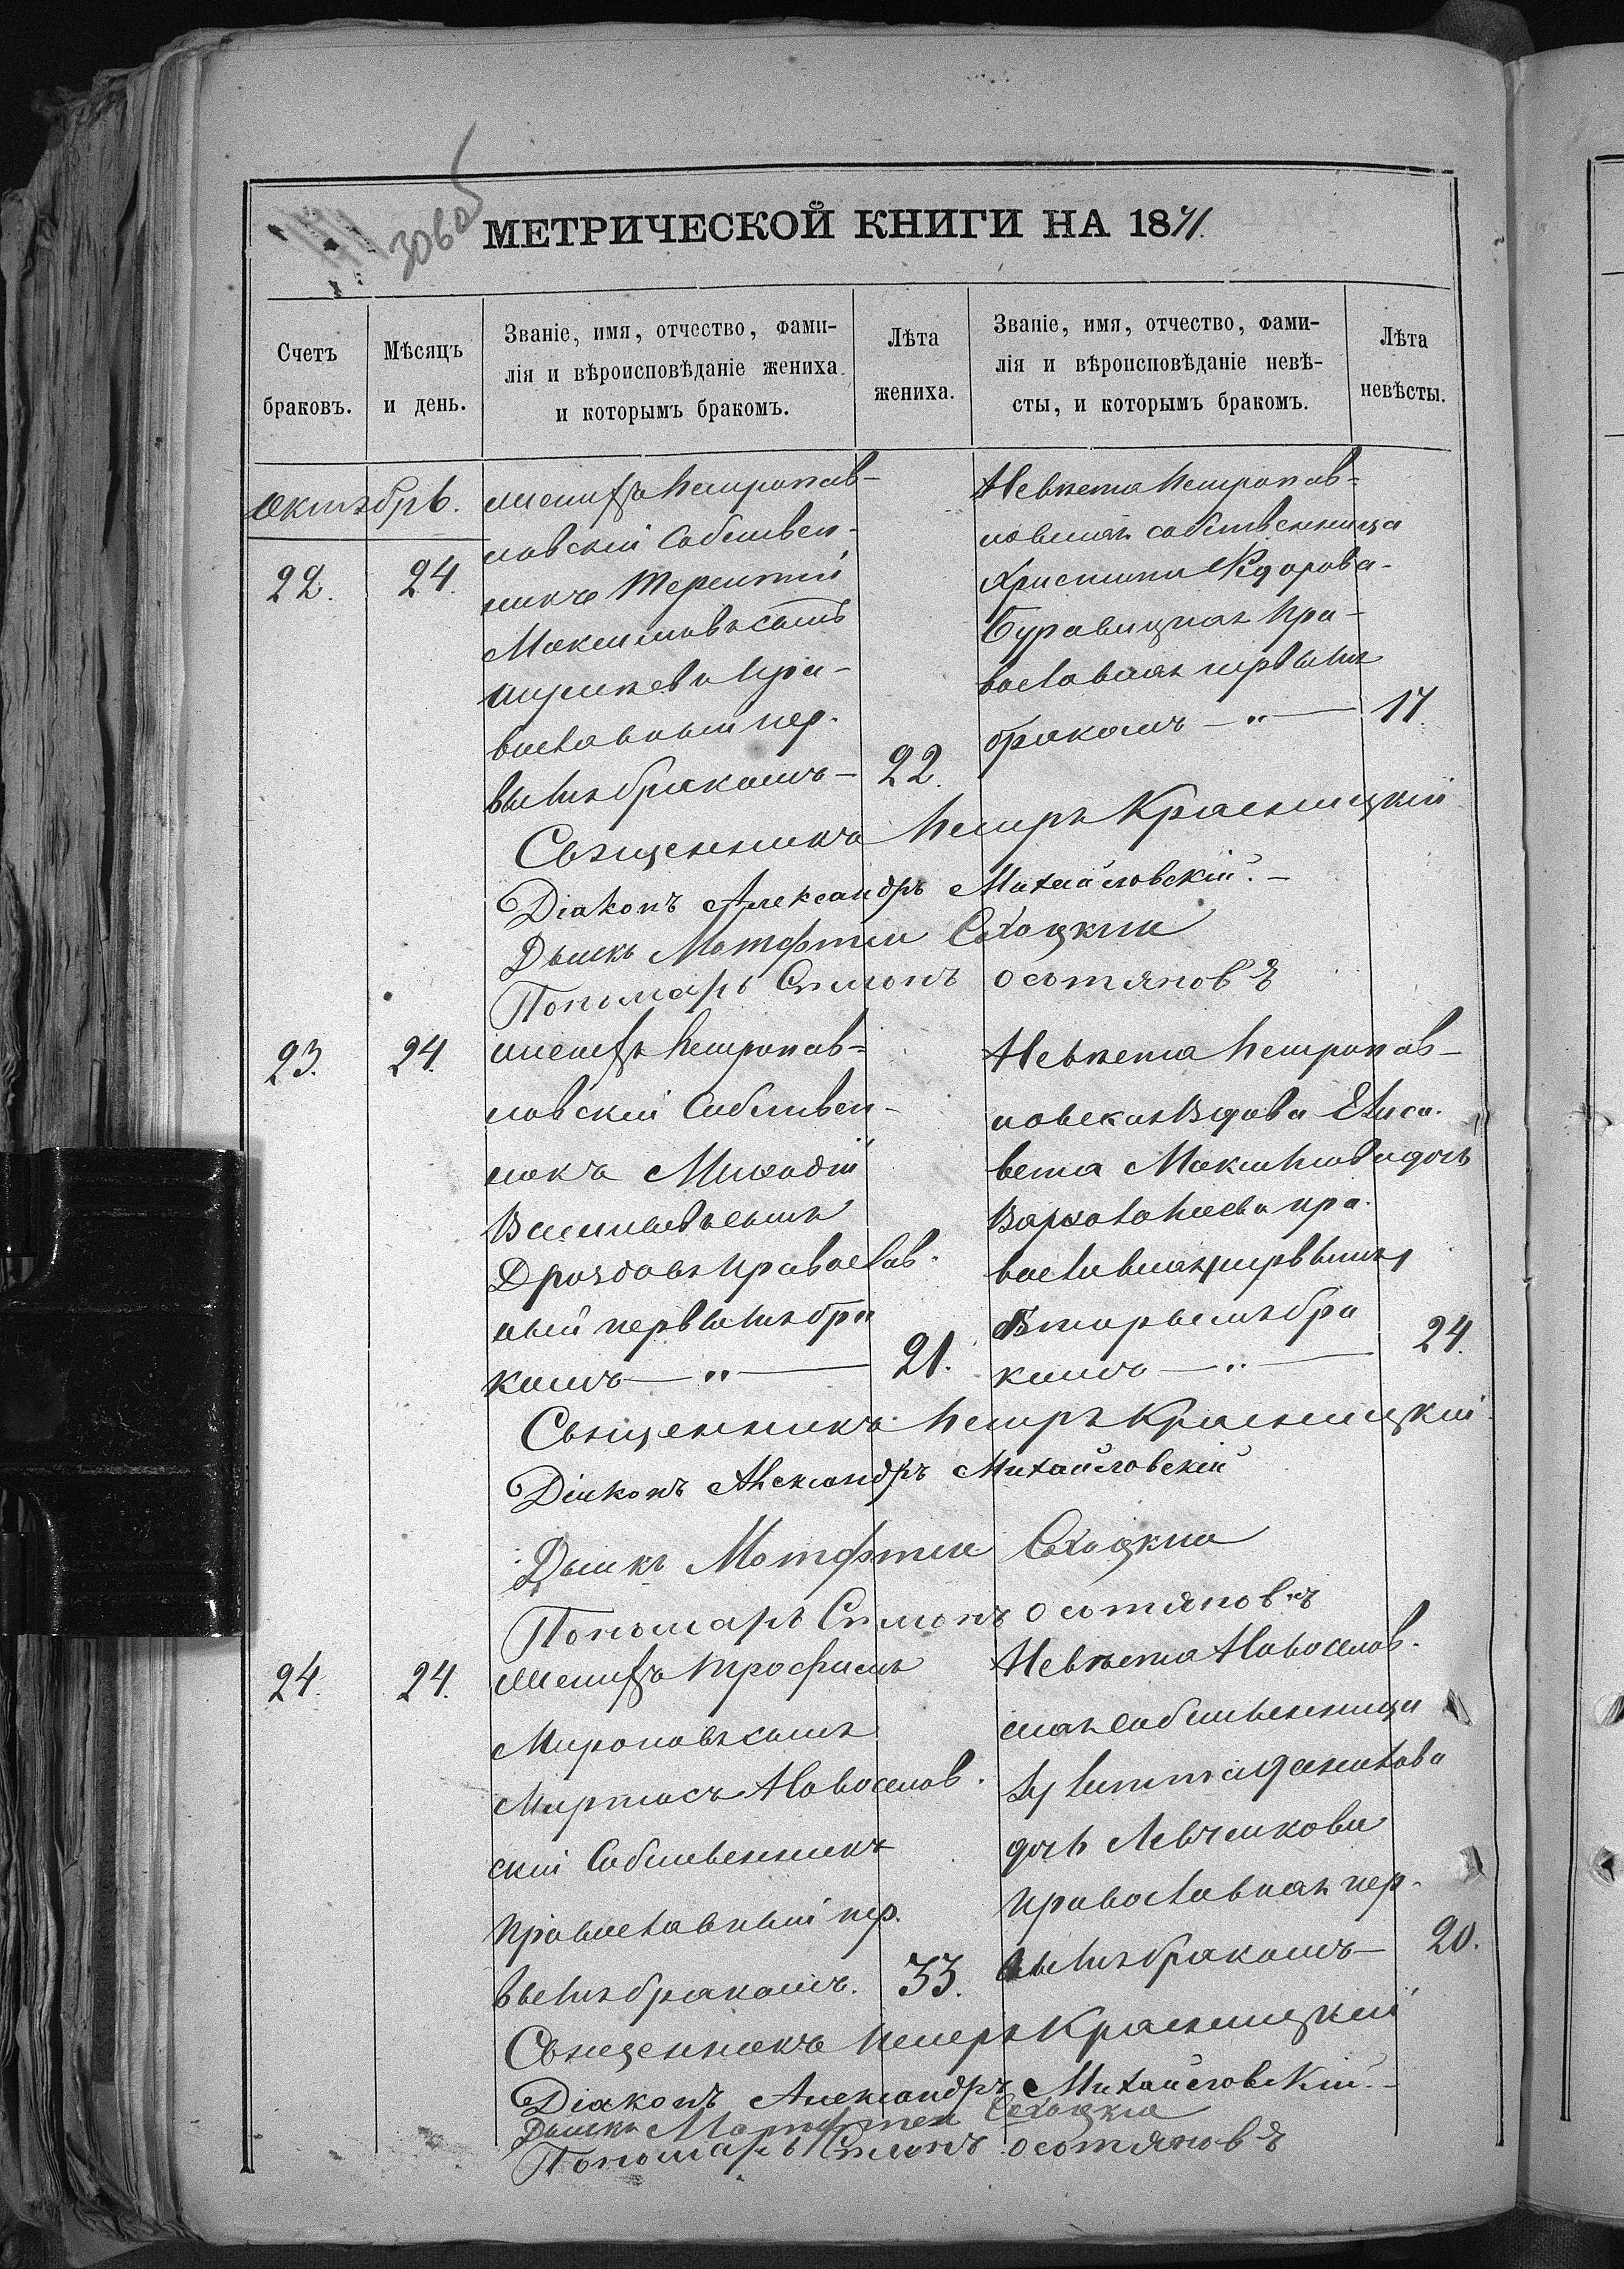 306 об
МЕТРИЧЕСКОЙ КНИГИ НА 1871.
Счетъ браковъ.
Мѣсяцъ и день.
Званіе, имя, отчество, фами-
лія и вѣроисповѣданіе жениха
и которымъ бракомъ.
Лѣта жениха.
Званіе, имя, отчество, фами-
лія и вѣроисповѣданіе невѣ-
сты, и которымъ бракомъ.
Лѣта невѣсты.
Октябрь.
22.
24.
Женихъ Петропав-
ловскій Собствен-
никъ Терентій
Максимовъ сынъ
пра-
вославный пер-
вымъ бракомъ —
22.
Невѣста Петропав-
ловская собственница
Христина Федорова
Буравицкая пра-
вославная первымъ
бракомъ — „ —
17.
Священникъ Петръ Красницкій
Діаконъ Александръ Михайловскій. —
Дьякъ Матфей Сахоцкій
Пономарь Симонъ Остяновъ
23.
24.
Женихъ Петропав-
ловскій Собствен-
никъ Мефодій
Васильевъ сынъ
Дроздовъ православ-
ный первымъ бра
комъ — „ —
21.
Невѣста Петропав-
ловская Вдова Елиса-
вета Максимова дочь
Варфоломеева пра-
вославная
Вторымъ бра
комъ — „ —
24.
Священникъ Петръ Красницкій
Діаконъ Александръ Михайловскій
Дьякъ Матфей Сахоцкій
Пономарь Симонъ Остяновъ
24.
24.
Женихъ Трофимъ
Мироновъ сынъ
Миртосъ Новоселов-
скій Собственникъ
Православный пер-
вымъ бракомъ.
33.
Невѣста Новоселов-
ская собственница
Данилова
дочь Левченкова
православная пер-
вымъ бракомъ —
20.
Священникъ Петръ Красницкій
Діаконъ Александръ Михайловскій. —
Дьякъ Матфей Сахоцкій
Пономарь Симонъ Остяновъ